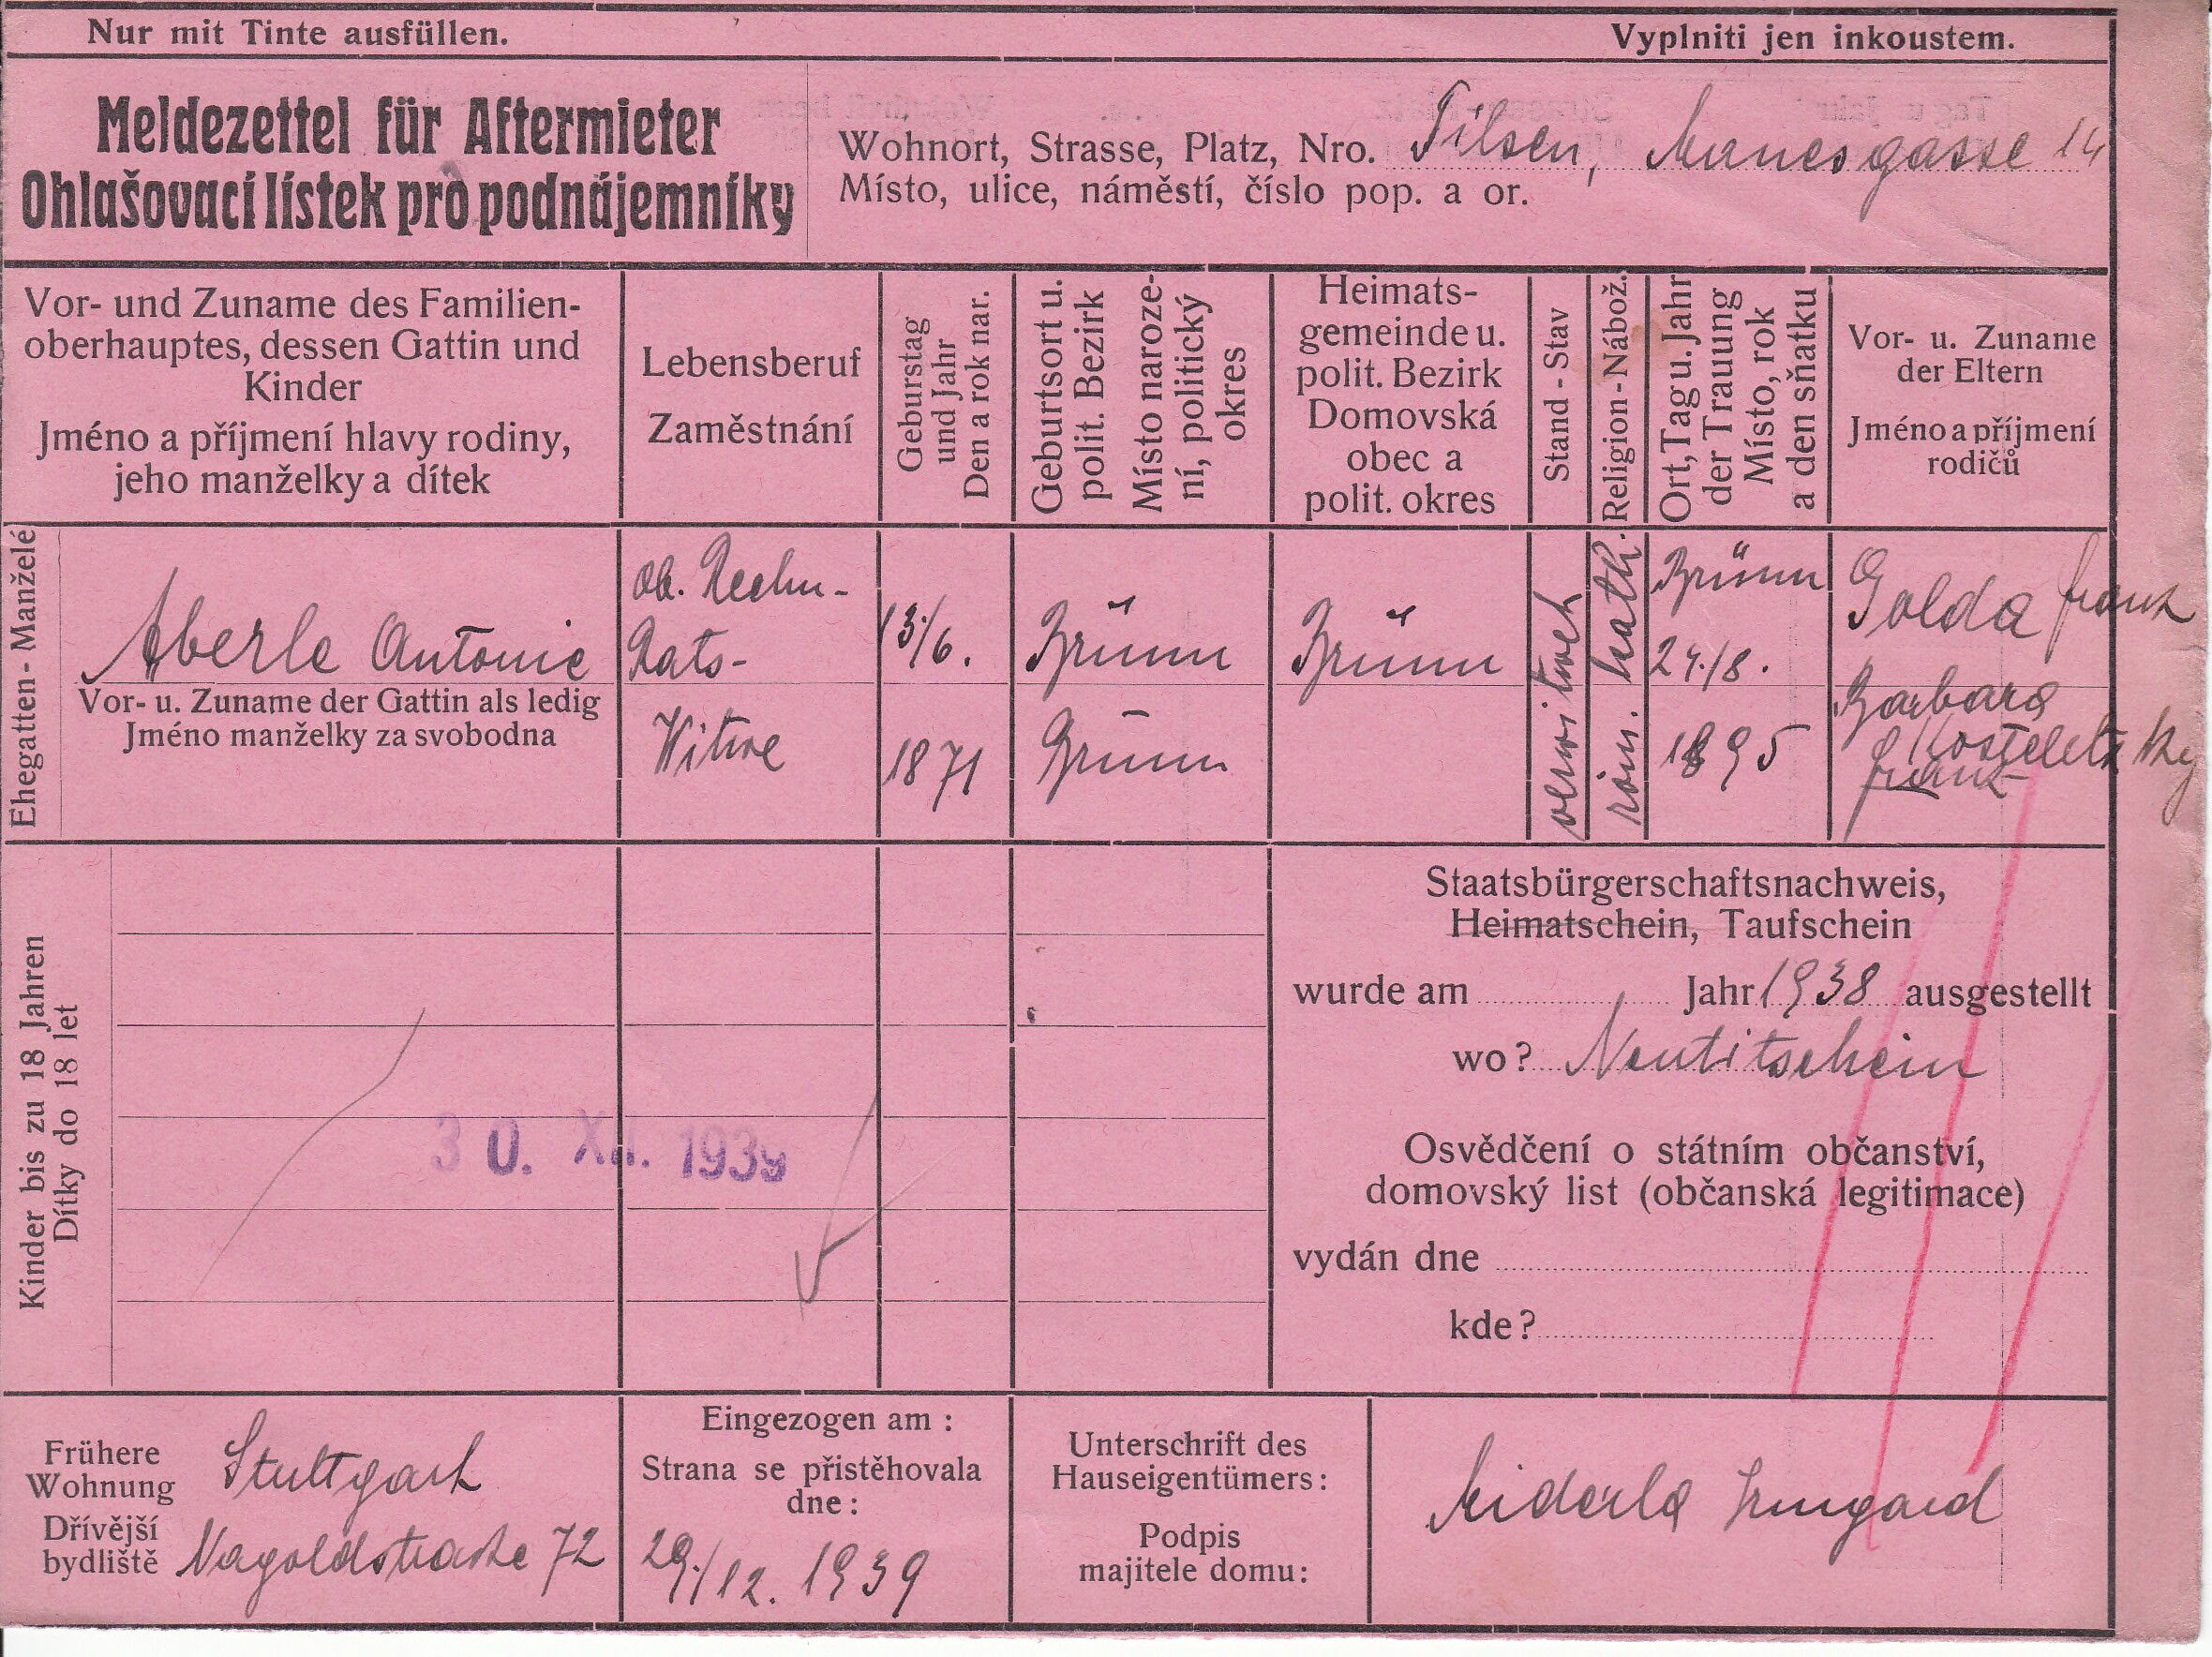 Nur mit Tinte ausfüllen.
Vyplniti jen inkoustem.
Meldezettel für Aftermieter
Ohlašovací lístek pro podnájemníky
Wohnort, Strasse, Platz, Nro. Pilsen, Manesgasse 14
Místo, ulice, náměstí, číslo pop. a or.
Vor- und Zuname des Familien-
oberhauptes, dessen Gattin und
Kinder
Jméno a příjmení hlavy rodiny,
jeho manželky a dítek
Lebensberuf
Zaměstnání
Geburstag
und Jahr
Den a rok nar.
Geburtsort u.
polit. Bezirk
Místo naroze-
ní, politický
okres
Heimats-
gemeinde u.
polit. Bezirk
Domovská
obec a
polit. okres
Stand - Stav
Religion - Nábož.
Ort, Tag u. Jahr
der Trauung
Místo, rok
a den sňatku
Vor- u. Zuname
der Eltern
Jméno a příjmení
rodičů
Ehegatten - Manželé
Aberle Antonie
Vor- u. Zuname der Gattin als ledig
Jméno manželky za svobodna
Ob. Rechn-
Rats-
Witwe
13/6.
1871
Brünn
Brünn
Brünn
verwitweh
röm. kath.
Brünn
24./8.
1895
Golda Franz
Barbara
Kosteletzky
Franz
Kinder bis zu 18 Jahren
Dítky do 18 let
30. XII. 1939
Staatsbürgerschaftsnachweis,
Heimatschein, Taufschein
wurde am Jahr 1938 ausgestellt
wo? Neutitschein
Osvědčení o státním občanství,
domovský list (občanská legitimace)
vydán dne
kde?
Frühere
Wohnung
Dřívější
bydliště
Stuttgart
Nagoldstraße 72
Eingezogen am :
Strana se přistěhovala
dne :
29./12. 1939
Unterschrift des
Hauseigentümers :
Podpis
majitele domu :
Irmgard